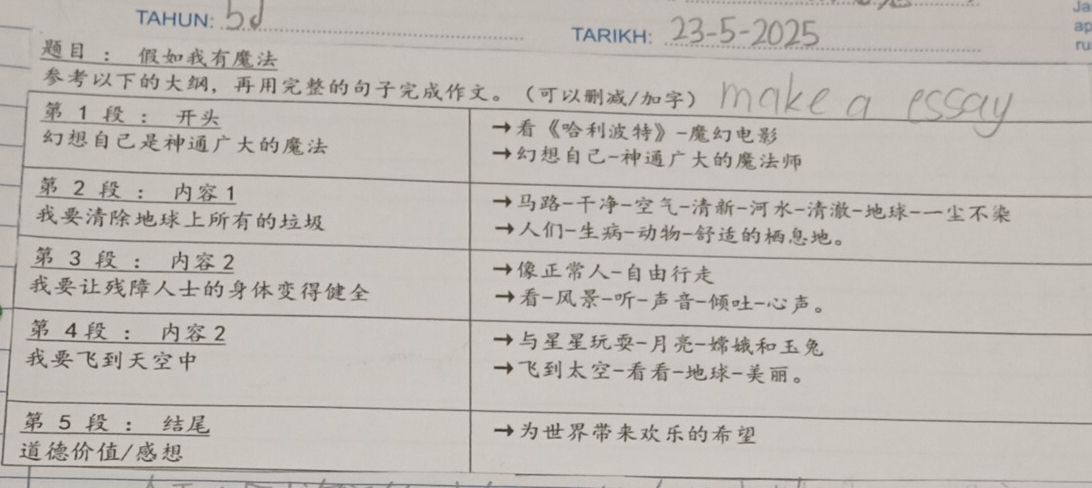 TAHUN: 5J
TARIKH: 23-5-2025
Ja
ap
ru
题目 ： 假如我有魔法
参考以下的大纲，再用完整的句子完成作文。（可以删减/加字） make a essay
第 1 段 ： 开头
幻想自己是神通广大的魔法
→看《哈利波特》-魔幻电影
→幻想自己-神通广大的魔法师
第 2 段 ： 内容1
我要清除地球上所有的垃圾
→马路-干净-空气-清新-河水-清澈-地球-一尘不染
→人们-生病-动物-舒适的栖息地。
第 3 段 ： 内容2
我要让残障人士的身体变得健全
→像正常人-自由行走
→看-风景-听-声音-倾吐-心声。
第 4段 ： 内容2
我要飞到天空中
→与星星玩耍-月亮-嫦娥和玉兔
→飞到太空-看看-地球-美丽。
第 5 段 ： 结尾
道德价值/感想
→为世界带来欢乐的希望